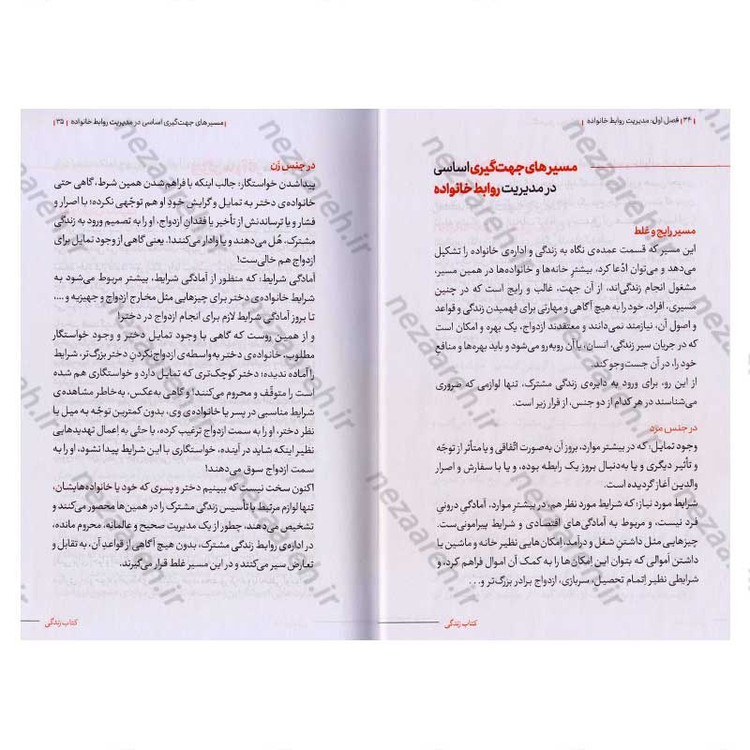 ۳۴ | فصل اول: مدیریت روابط خانواده
مسیرهای جهت‌گیری اساسی
در مدیریت روابط خانواده
مسیر رایج و غلط
این مسیر که قسمت عمده‌ی نگاه به زندگی و اداره‌ی خانواده را تشکیل
می‌دهد و می‌توان ادّعا کرد، بیشترِ خانه‌ها و خانواده‌ها در همین مسیر،
مشغول انجام زندگی‌اند، از آن جهت، غالب و رایج است که در چنین
مسیری، افراد، خود را به هیچ آگاهی و مهارتی برای فهمیدن زندگی و قواعد
و اصول آن، نیازمند نمی‌دانند و معتقدند ازدواج، یک بهره و امکان است
که در جریان سیر زندگی، انسان، با آن روبه‌رو می‌شود و باید بهره‌ها و منافعِ
خود را، در آن جست‌وجو کند.
از این رو، برای ورود به دایره‌ی زندگی مشترک، تنها لوازمی که ضروری
می‌شناسند در هر کدام از دو جنس، از قرار زیر است.
در جنس مرد
وجود تمایل: که در بیشتر موارد، بروز آن به‌صورت اتّفاقی و یا متأثر از توجّه
و تأثیر دیگری و یا به‌دنبال بروز یک رابطه بوده، و یا با سفارش و اصرار
والدین آغاز گردیده است.
شرایط مورد نیاز: که شرایط مورد نظر هم، در بیشترِ موارد، آمادگی درونیِ
فرد نیست، و مربوط به آمادگی‌های اقتصادی و شرایط پیرامونی‌ست.
چیزهایی مثل داشتنِ شغل و درآمد، اِمکان‌هایی نظیر خانه و ماشین یا
داشتن اَموالی که بتوان این اِمکان‌ها را به کمک آن اموال فراهم کرد، و
شرایطی نظیر اِتمام تحصیل، سربازی، ازدواج برادر بزرگ‌تر و...
کتاب زندگی
مسیرهای جهت‌گیری اساسی در مدیریت روابط خانواده | ۳۵
در جنس زن
پیدا شدن خواستگار: جالب اینکه با فراهم شدن همین شرط، گاهی حتی
خانواده‌ی دختر به تمایل و گرایش خودِ او هم توجّهی نکرده؛ با اصرار و
فشار و یا ترساندنش از تأخیر یا فقدانِ ازدواج، او را به تصمیم ورود به زندگی
مشترک، هُل می‌دهند و یا وادار می‌کنند!. یعنی گاهی از وجود تمایل برای
ازدواج هم خالی‌ست!
آمادگی شرایط: که منظور از آمادگی شرایط، بیشتر مربوط می‌شود به
شرایط خانواده‌ی دختر برای چیزهایی مثل مخارج ازدواج و جهیزیه و ...،
تا بروز آمادگی شرایط لازم برای انجام ازدواج در دختر!
و از همین روست که گاهی با وجود تمایل دختر و وجود خواستگار
مطلوب، خانواده‌ی دختر به‌واسطه‌ی ازدواج‌نکردنِ دختر بزرگ‌تر، شرایط
را آماده ندیده؛ دختر کوچک‌تری که تمایل دارد و خواستگاری هم شده
است را متوقّف و محروم می‌کنند! و گاهی به‌عکس، به‌خاطر مشاهده‌ی
شرایط مناسبی در پسر یا خانواده‌ی وی، بدون کمترین توجّه به میل یا
نظر دختر، او را به سمت ازدواج ترغیب کرده، یا حتّی به اِعمال تهدیدهایی
نظیر اینکه شاید در آینده، خواستگاری با این شرایط پیدا نشود، او را به
سمت ازدواج سوق می‌دهند!
اکنون سخت نیست که ببینیم دختر و پسری که خود یا خانواده‌هایشان،
تنها لوازم مرتبط با تأسیس زندگی مشترک را در همین‌ها محصور می‌کنند و
تشخیص می‌دهند، چطور از یک مدیریت صحیح و عالمانه، محروم مانده،
در اداره‌ی روابط زندگی مشترک، بدون هیچ آگاهی از قواعدِ آن، به تقابل و
تعارض سیر می‌کنند و در این مسیر غلط قرار می‌گیرند.
کتاب زندگی
nezaareh.ir